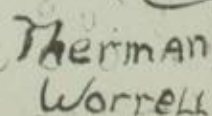 Therman
Worrell